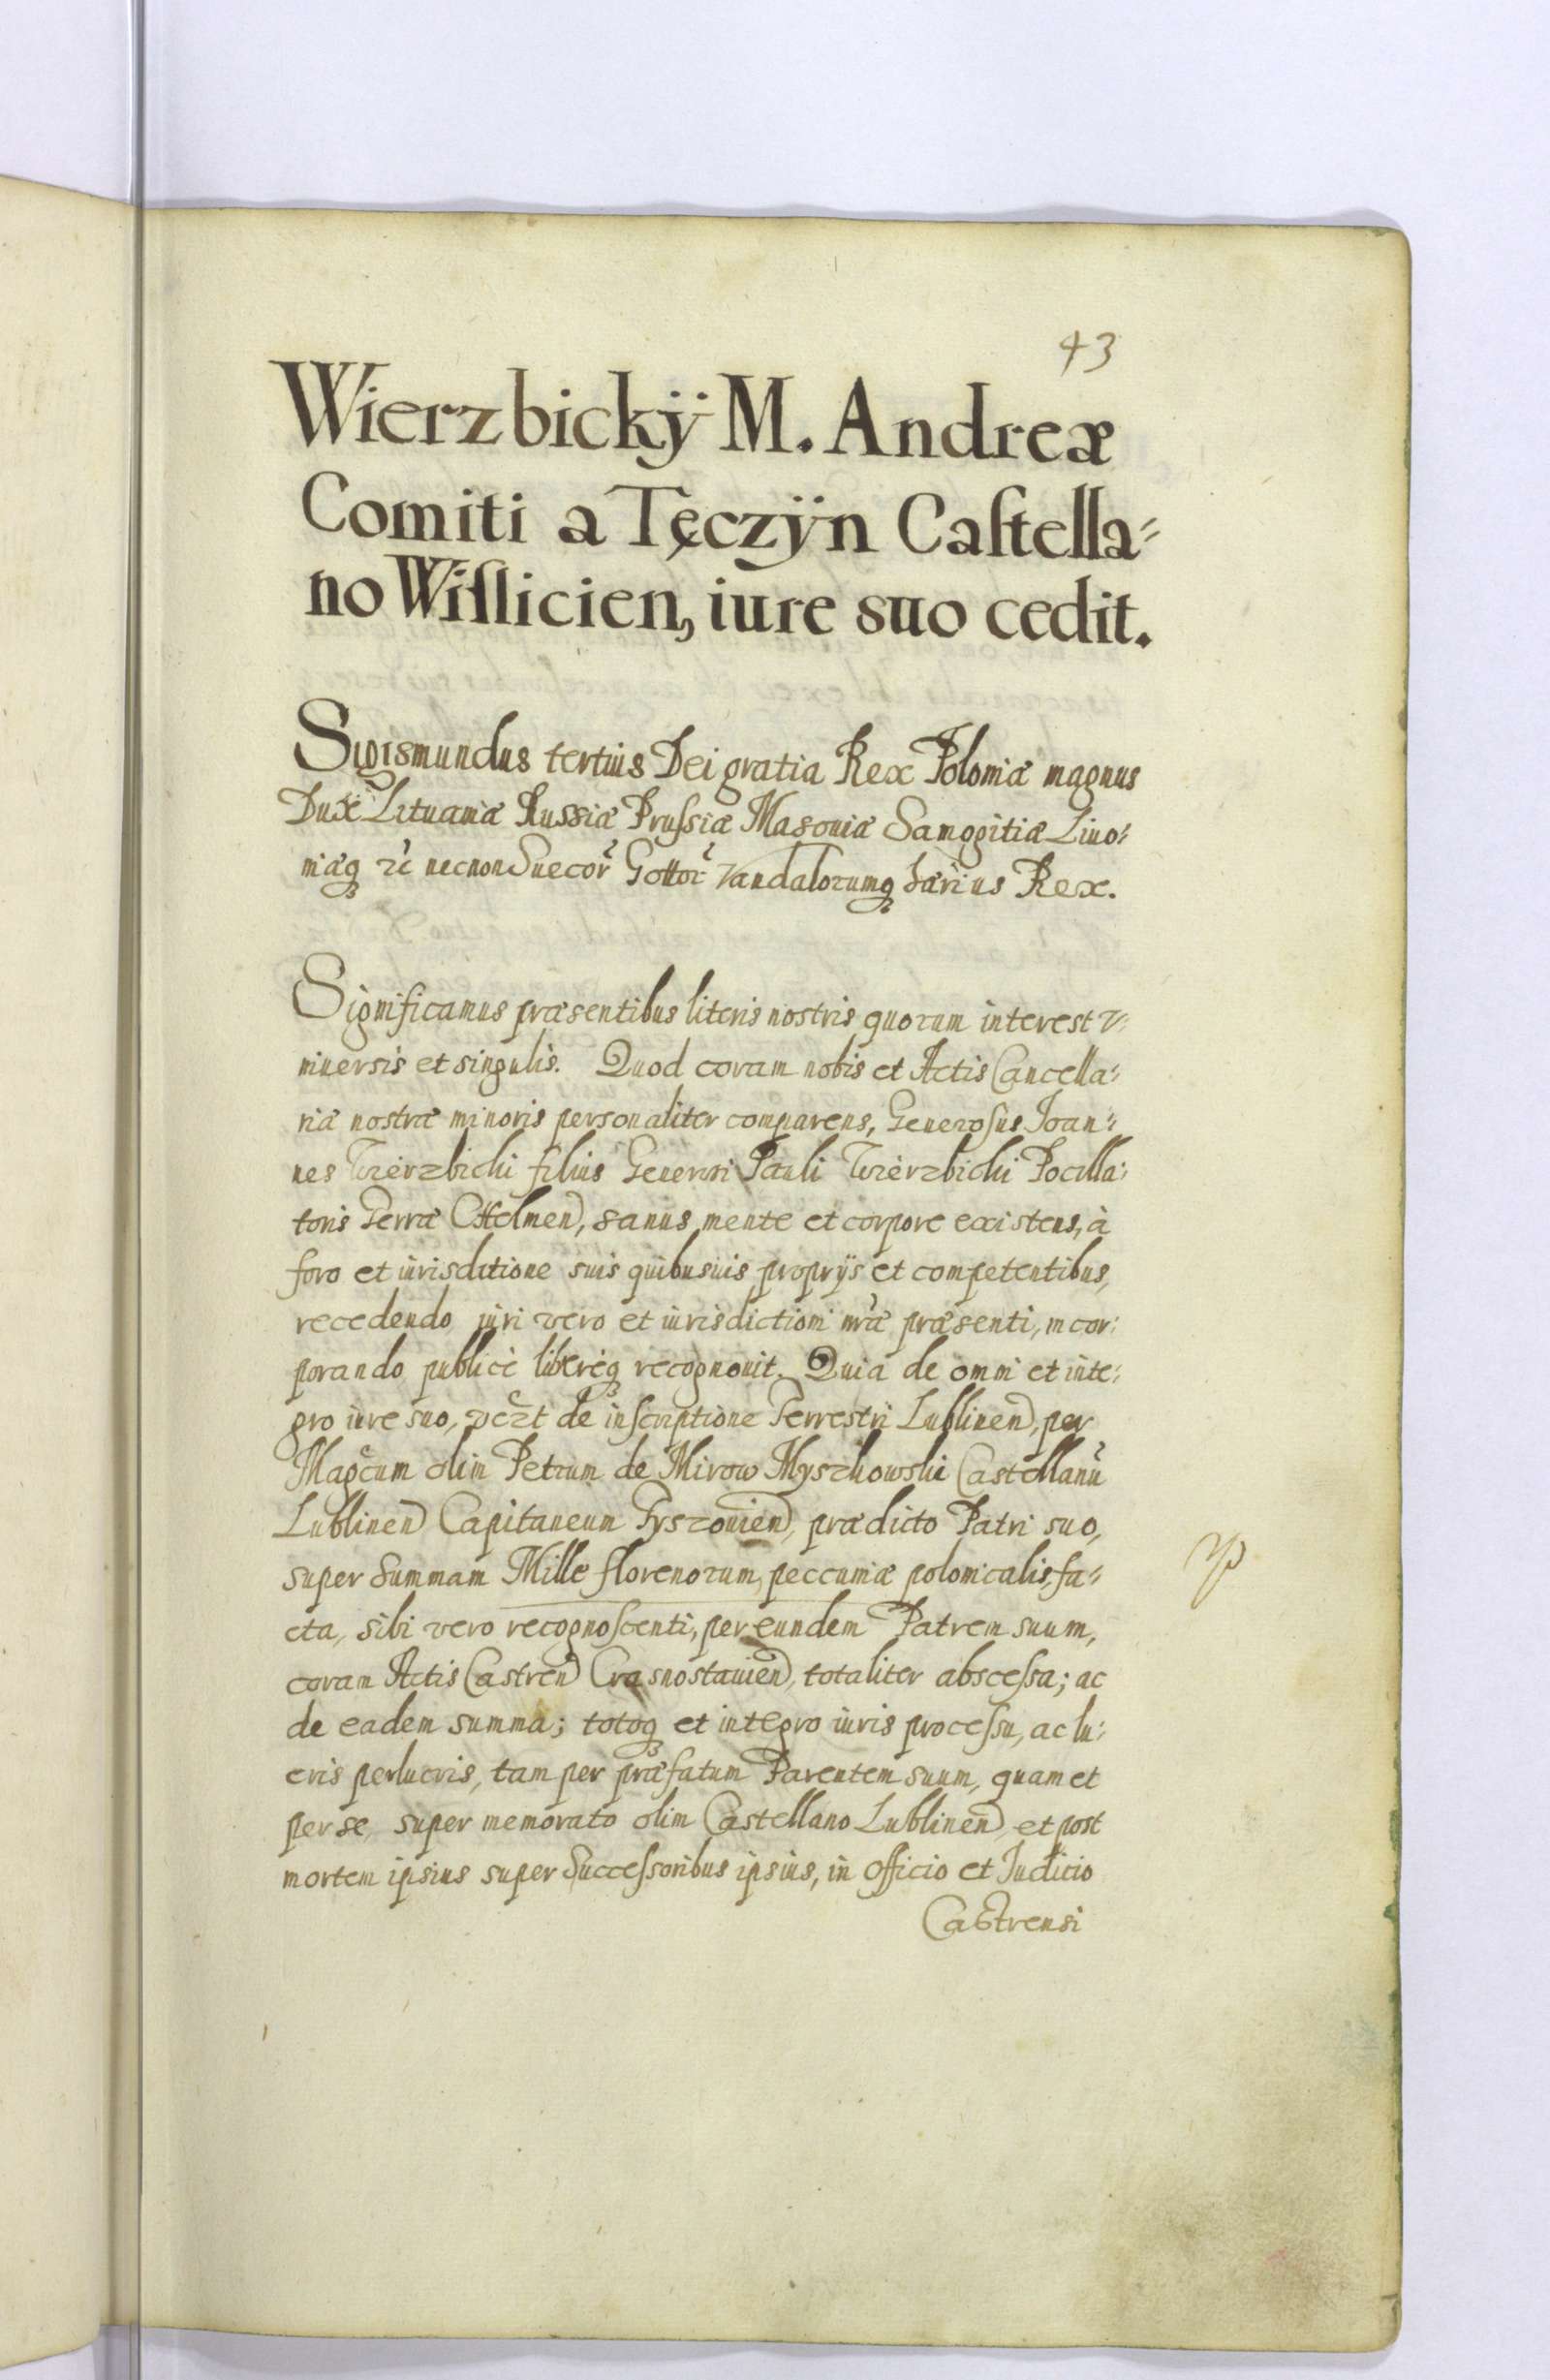 43
Wierzbickÿ M. Andreæ
Comiti a Tęczÿn Castella⸗
no Wislicien, iure suo cedit.
Sigismundus tertius Dei gratia Rex Poloniæ magnus
Dux Lituaniæ Russiæ Prussiæ Masouiæ Samogitiæ Liuo:
niæq; necnon Suecor Gottor Vandalorumq; Rex.
Significamus præsentibus literis nostris quorum interest v:
niuersis et singulis. Quod coram nobis et Actis Cancella:
riæ nostræ minoris personaliter comparens, Generosus Ioan:
nes Wierzbicki filius Generosi Pauli Wierzbicki Pocilla:
toris Terræ Chelmen, sanus mente et corpore existens, à
foro et iurisditione suis quibusuis proprijs et competentibus,
recedendo, iuri vero et iurisdictioni nræ præsenti, incor:
porando publicè liberèq; recognouit. Quia de omni et inte:
gro iure suo, vczt de inscriptione Terrestri Lublinen, per
Magcum olim Petrum de Mirow Myszkowski Castellanũ
Lublinen Capitaneum Tyszouien, prædicto Patri suo,
super Summam Mille florenorum, peccuniæ polonicalis, fa:
cta, sibi vero recognoscenti, per eundem Patrem suum,
coram Actis Castren Crasnostauien, totaliter abscessa; ac
de eadem summa; totoq; et integro iuris processu, ac lu:
cris perlucris, tam per præfatum Parentem suum, quam et
per se, super memorato olim Castellano Lublinen, et post
mortem ipsius super Successoribus ipsius, in Officio et Iudicio
Castrensi